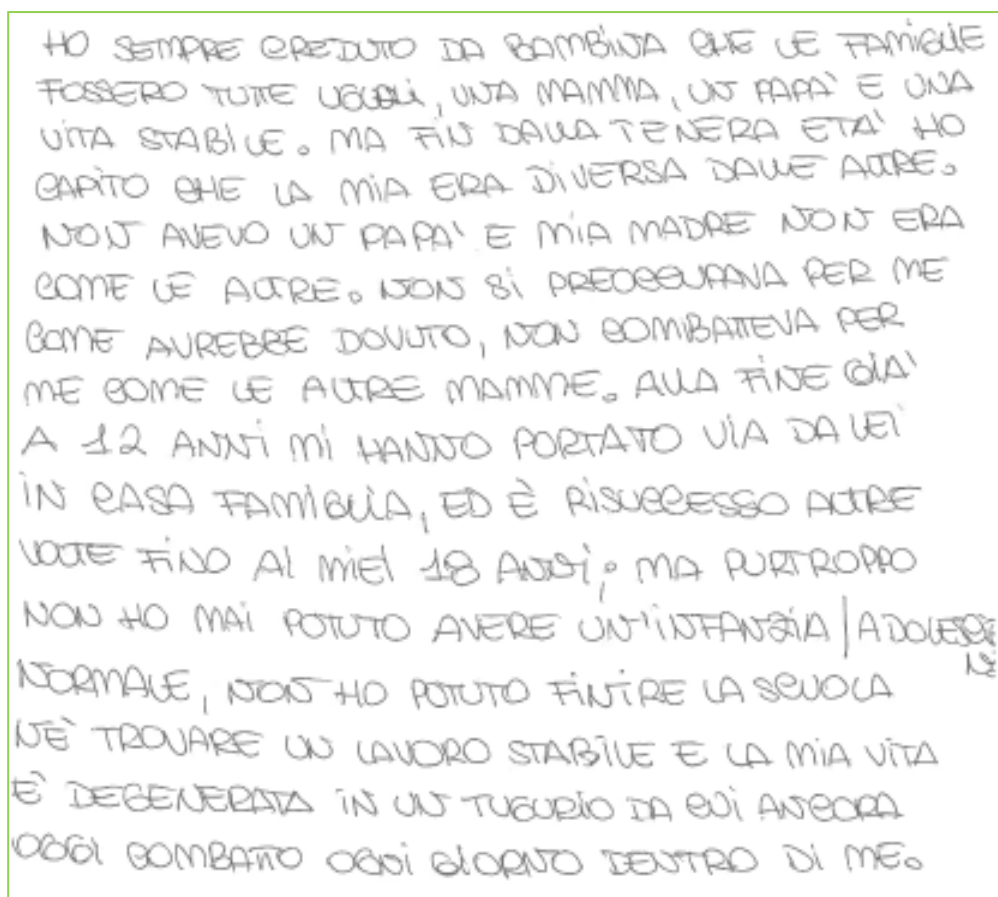 HO SEMPRE CREDUTO DA BAMBINA CHE LE FAMIGLIE
FOSSERO TUTTE UGUALI, UNA MAMMA, UN PAPA' E UNA
VITA STABILE. MA FIN DALLA TENERA ETA' HO
CAPITO CHE LA MIA ERA DIVERSA DALLE ALTRE.
NON AVEVO UN PAPA' E MIA MADRE NON ERA
COME LE ALTRE. NON SI PREOCCUPAVA PER ME
COME AVREBBE DOVUTO, NON COMBATTEVA PER
ME COME LE ALTRE MAMME. ALLA FINE GIA'
A 12 ANNI MI HANNO PORTATO VIA DA LEI
IN CASA FAMIGLIA, ED È RISUCCESSO ALTRE
VOLTE FINO AI MIEI 18 ANNI; MA PURTROPPO
NON HO MAI POTUTO AVERE UN'INFANZIA/ADOLESCE
NORMALE, NON HO POTUTO FINIRE LA SCUOLA
NÈ TROVARE UN LAVORO STABILE E LA MIA VITA
E' DEGENERATA IN UN TUGURIO DA CUI ANCORA
OGGI COMBATTO OGNI GIORNO DENTRO DI ME.